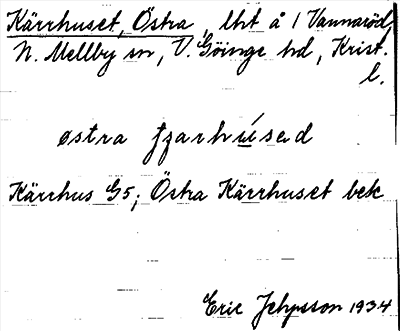 Kärrhuset, Östra, lht å 1 Vannaröd,
N. Mellby sn, V. Göinge hd, Krist.
l.
østra tjzarhúsad
Kärrhus G5; Östra Kärrhuset bek
Eric Jepsson 1934